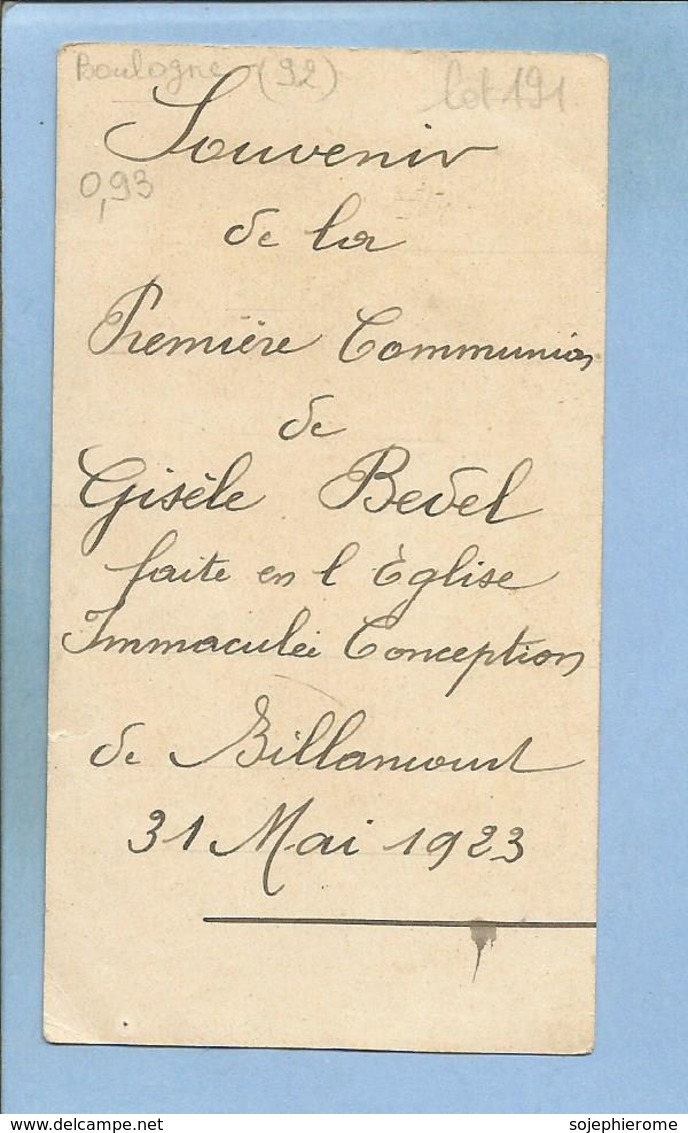 Boulogne (92)
lot 191
Souvenir
0,93
de la
Première Communion
de
Gisèle Bedel
faite en l Église
Immaculée Conception
de Billancourt
31 Mai 1923
delcampe.net
sojephierome